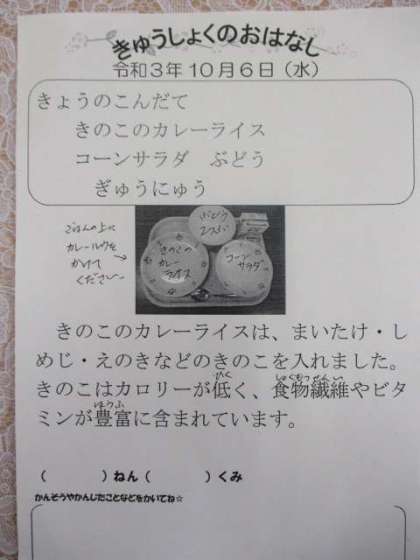 きゅうしょくのおはなし
令和3年10月6日（水）
きょうのこんだて
きのこのカレーライス
コーンサラダ　ぶどう
ぎゅうにゅう
ごはんの上に
カレールウを
かけて
ください
ぶどう
2つぶ
きのこの
カレー
ライス
コーン
サラダ
きのこのカレーライスは、まいたけ・し
めじ・えのきなどのきのこを入れました。
きのこはカロリーが低く、食物繊維やビタ
ミンが豊富に含まれています。
ひく
しょくもつせんい
ほうふ
（　　　）ねん（　　　）くみ
かんそうやかんじたことなどをかいてね☆